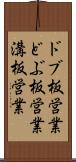 ドブ板営業
どぶ板営業
溝板営業